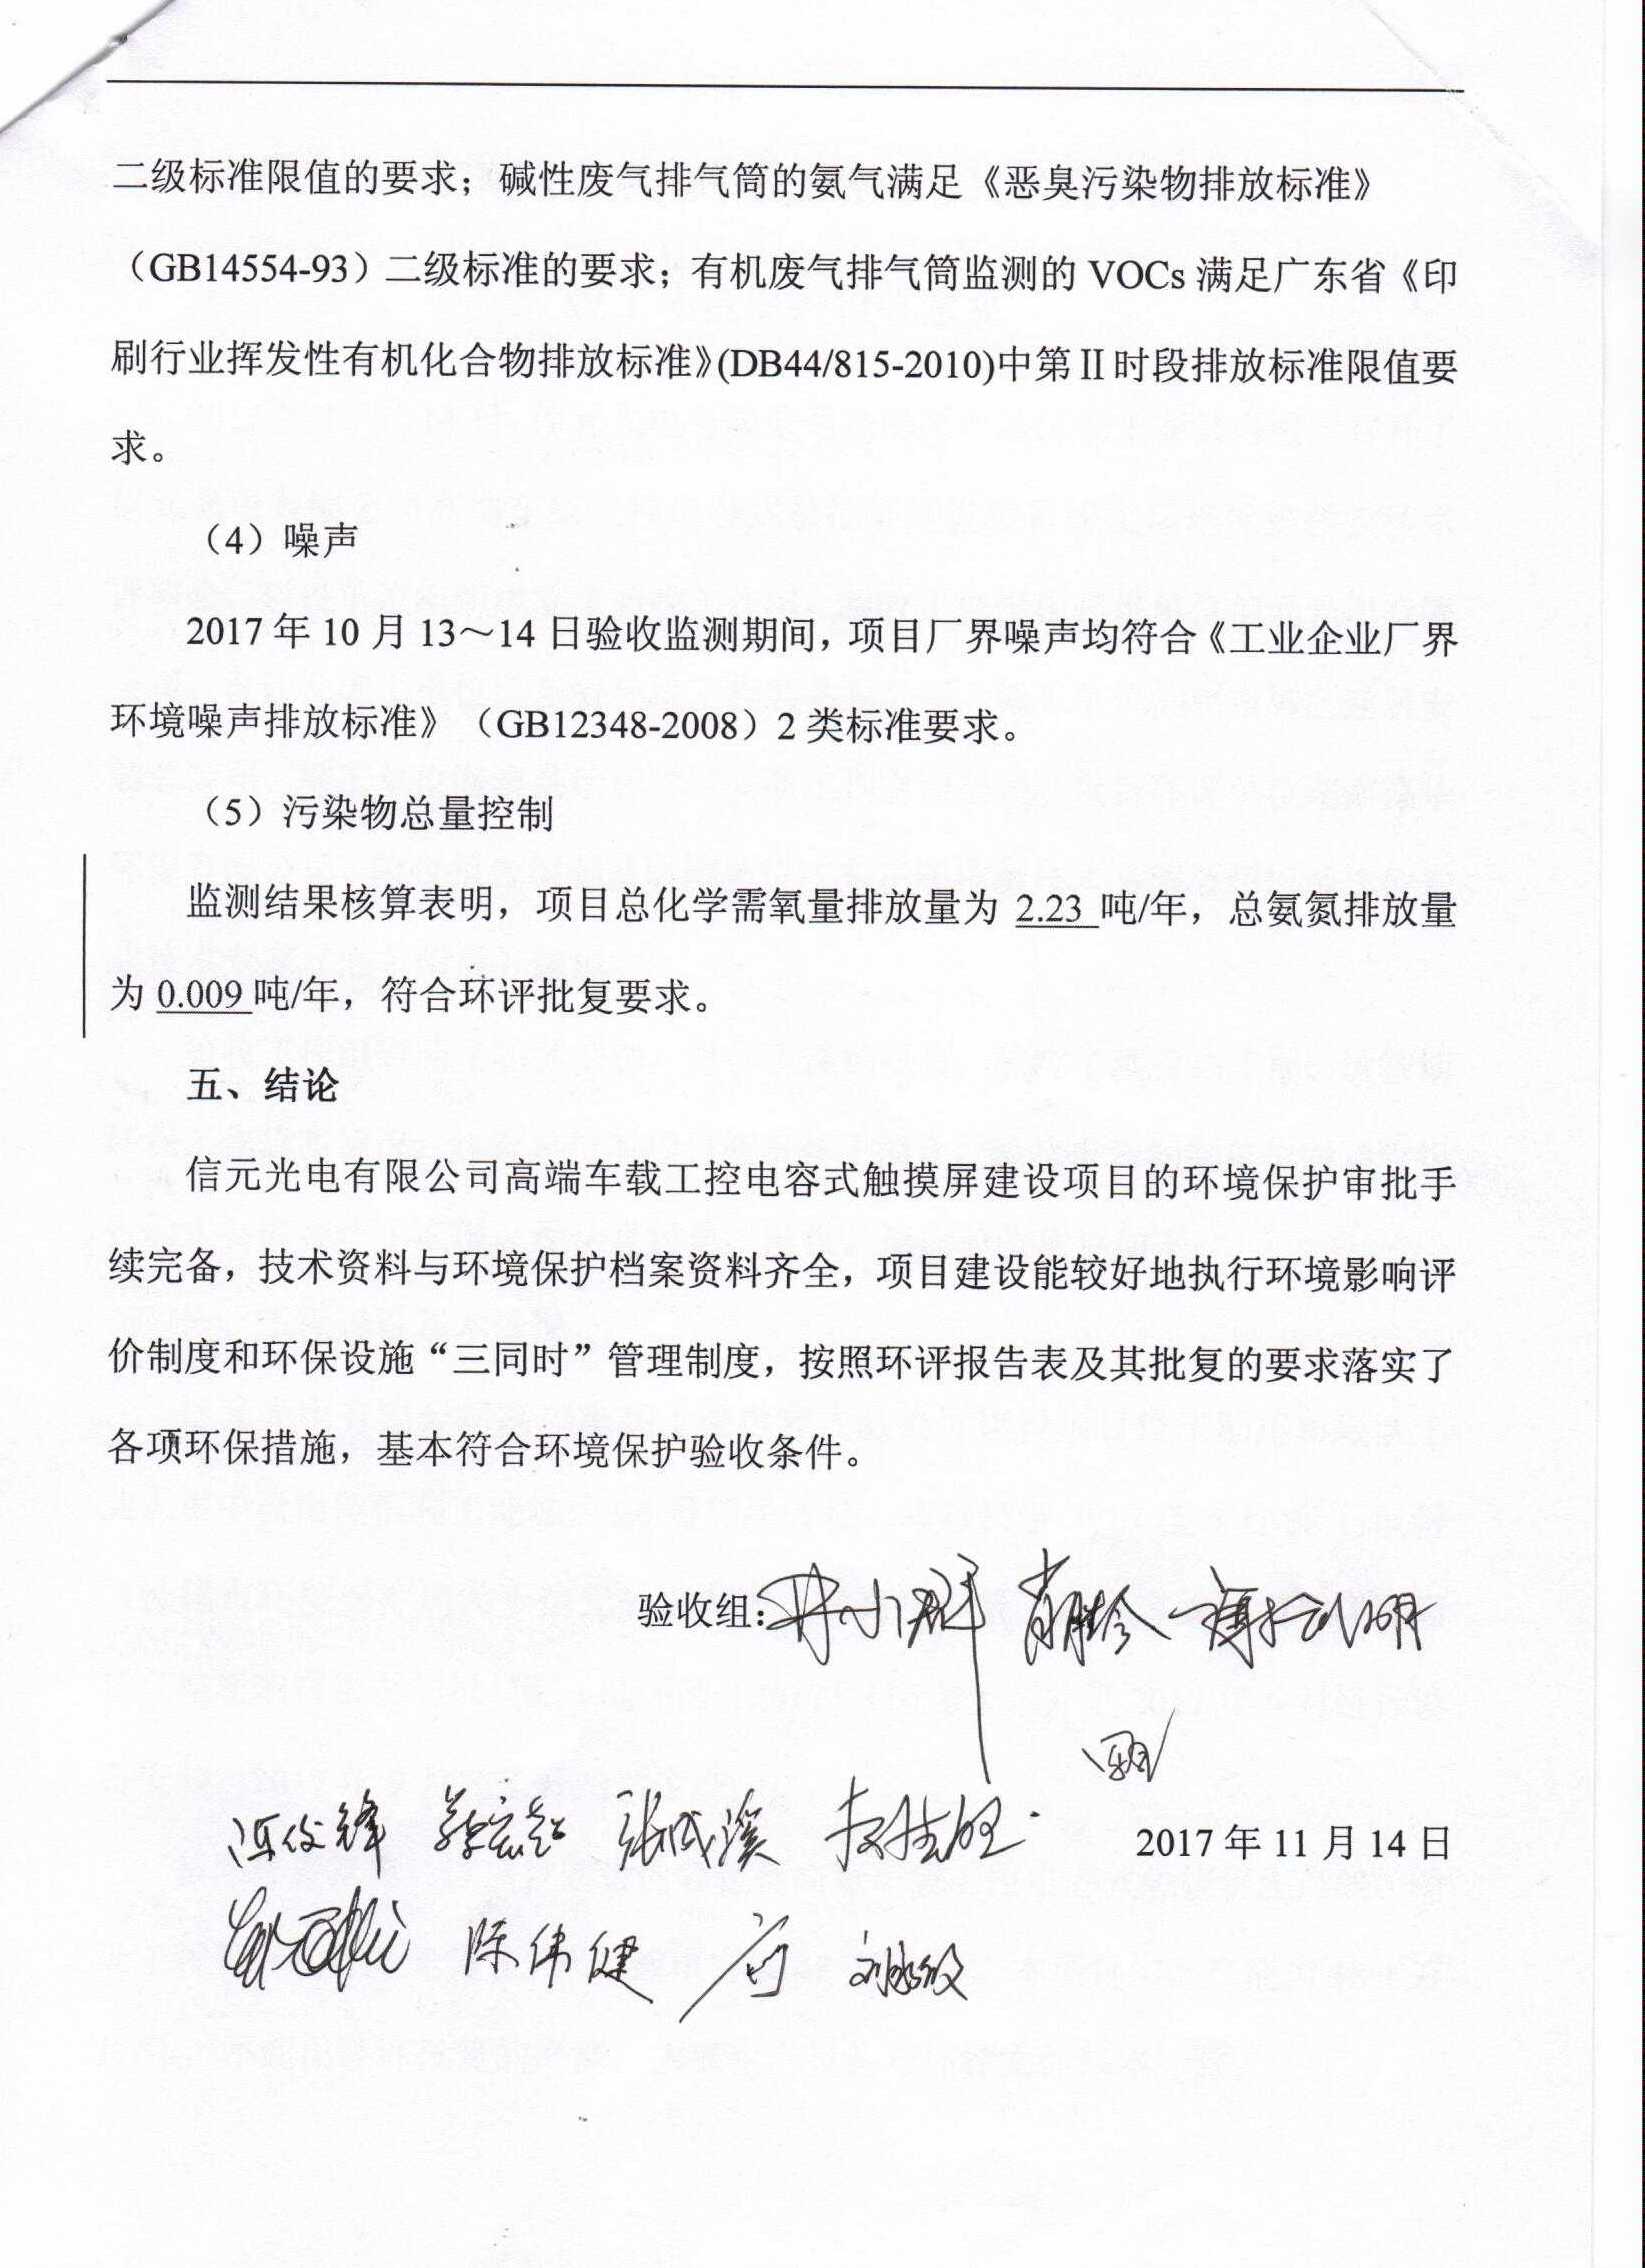 二级标准限值的要求；碱性废气排气筒的氨气满足《恶臭污染物排放标准》
（GB14554-93）二级标准的要求；有机废气排气筒监测的 VOCs 满足广东省《印
刷行业挥发性有机化合物排放标准》(DB44/815-2010)中第Ⅱ时段排放标准限值要
求。
（4）噪声
2017 年 10 月 13～14 日验收监测期间，项目厂界噪声均符合《工业企业厂界
环境噪声排放标准》（GB12348-2008）2 类标准要求。
（5）污染物总量控制
监测结果核算表明，项目总化学需氧量排放量为 2.23 吨/年，总氨氮排放量
为 0.009 吨/年，符合环评批复要求。
五、结论
信元光电有限公司高端车载工控电容式触摸屏建设项目的环境保护审批手
续完备，技术资料与环境保护档案资料齐全，项目建设能较好地执行环境影响评
价制度和环保设施“三同时”管理制度，按照环评报告表及其批复的要求落实了
各项环保措施，基本符合环境保护验收条件。
验收组：
张成溪
2017 年 11 月 14 日
陈伟健